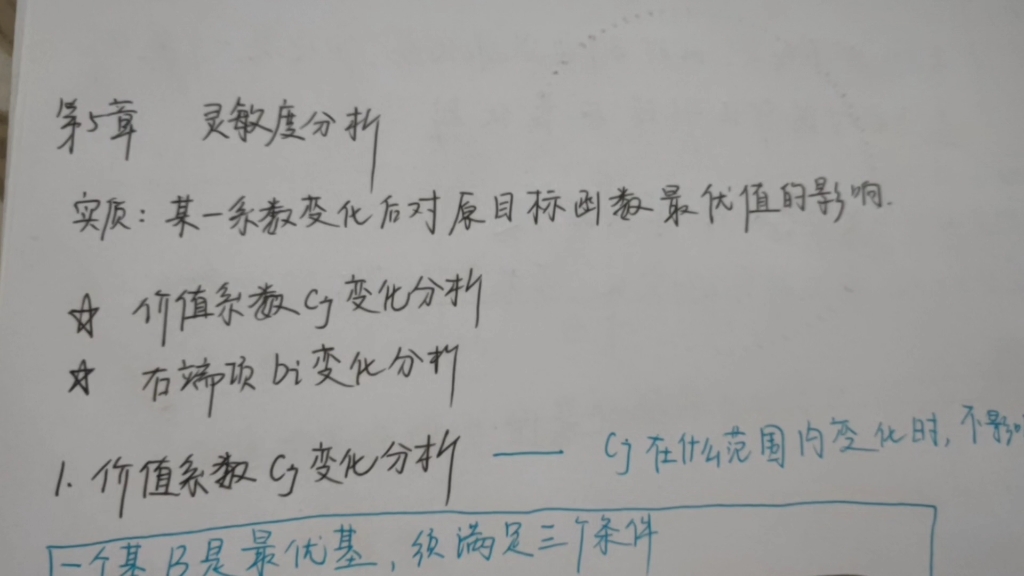 第5章 灵敏度分析
实质：某一系数变化后对原目标函数最优值的影响.
☆ 价值系数 Cj 变化分析
☆ 右端项 bi 变化分析
1. 价值系数 Cj 变化分析 —— Cj 在什么范围内变化时，不影
一个基 B 是最优基，须满足三个条件